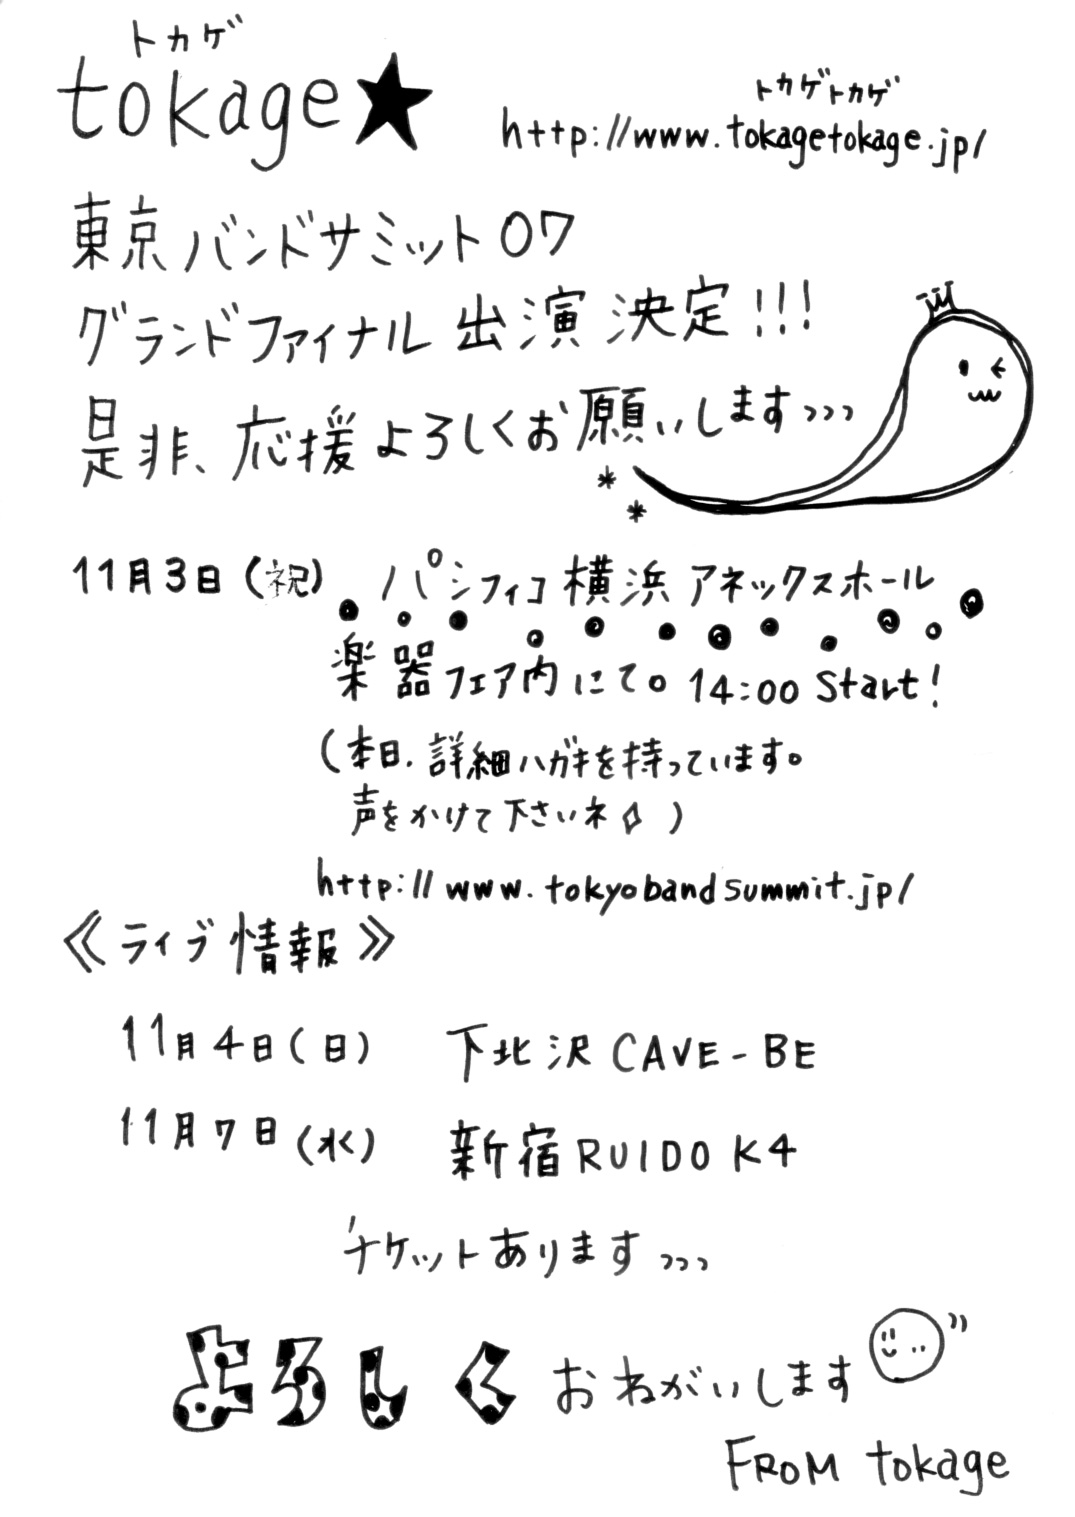 トカゲ
tokage★
トカゲトカゲ
http://www.tokagetokage.jp/
東京バンドサミット07
グランドファイナル出演決定!!!
是非、応援よろしくお願いします、、、
11月3日(祝) パシフィコ横浜 アネックスホール
楽器フェア内にて。14:00 Start!
(本日、詳細ハガキを持っています。
声をかけて下さいネ◇)
http://www.tokyobandsummit.jp/
《ライブ情報》
11月4日(日) 下北沢 CAVE-BE
11月7日(水) 新宿 RUIDO K4
チケットあります、、、
よろしくおねがいします
FROM tokage